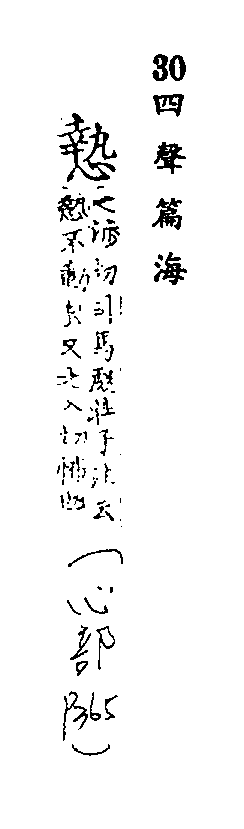 30 四聲篇海
慹 之涉切司馬彪莊子注云
慹不動皃又之入切怖
(心部
P365)